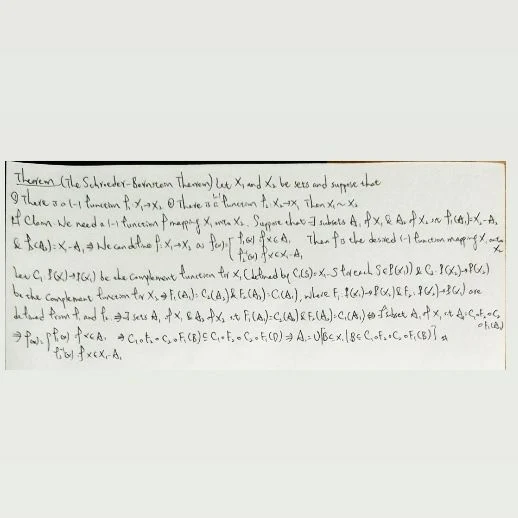 Theorem (The Schroeder-Bernstein Theorem) Let X₁ and X₂ be sets and suppose that
① There is a 1-1 function f₁: X₁→X₂ ② There is a 1-1 function f₂: X₂→X₁ Then X₁~X₂
pf Claim We need a 1-1 function f mapping X₁ onto X₂. Suppose that ∃ subsets A₁ of X₁ & A₂ of X₂ st f₁(A₁)=X₂-A₂
& f₂(A₂)=X₁-A₁ ⇒ We can define f: X₁→X₂ as f(x)={f₁(x) if x∈A₁ Then f is the desired 1-1 function mapping X₁ onto X₂
f₂⁻¹(x) if x∈X₁-A₁
Let C₁: P(X₁)→P(X₁) be the complement function for X₁ (defined by C₁(S)=X₁-S for each S∈P(X₁)) & C₂: P(X₂)→P(X₂)
be the complement function for X₂ ⇒ F₁(A₁)=C₂(A₂) & F₂(A₂)=C₁(A₁), where F₁: P(X₁)→P(X₂) & F₂: P(X₂)→P(X₁) are
defined from f₁ and f₂ ⇒ ∃ sets A₁ of X₁ & A₂ of X₂ st F₁(A₁)=C₂(A₂) & F₂(A₂)=C₁(A₁) ⇔ ∃ subset A₁ of X₁ st A₁=C₁∘F₂∘C₂∘F₁(A₁)
⇒ f(x)={f₁(x) if x∈A₁ ⇒ C₁∘F₂∘C₂∘F₁(B)⊆C₁∘F₂∘C₂∘F₁(D) ⇒ A₁=∪{B⊆X₁|B⊆C₁∘F₂∘C₂∘F₁(B)}
f₂⁻¹(x) if x∈X₁-A₁